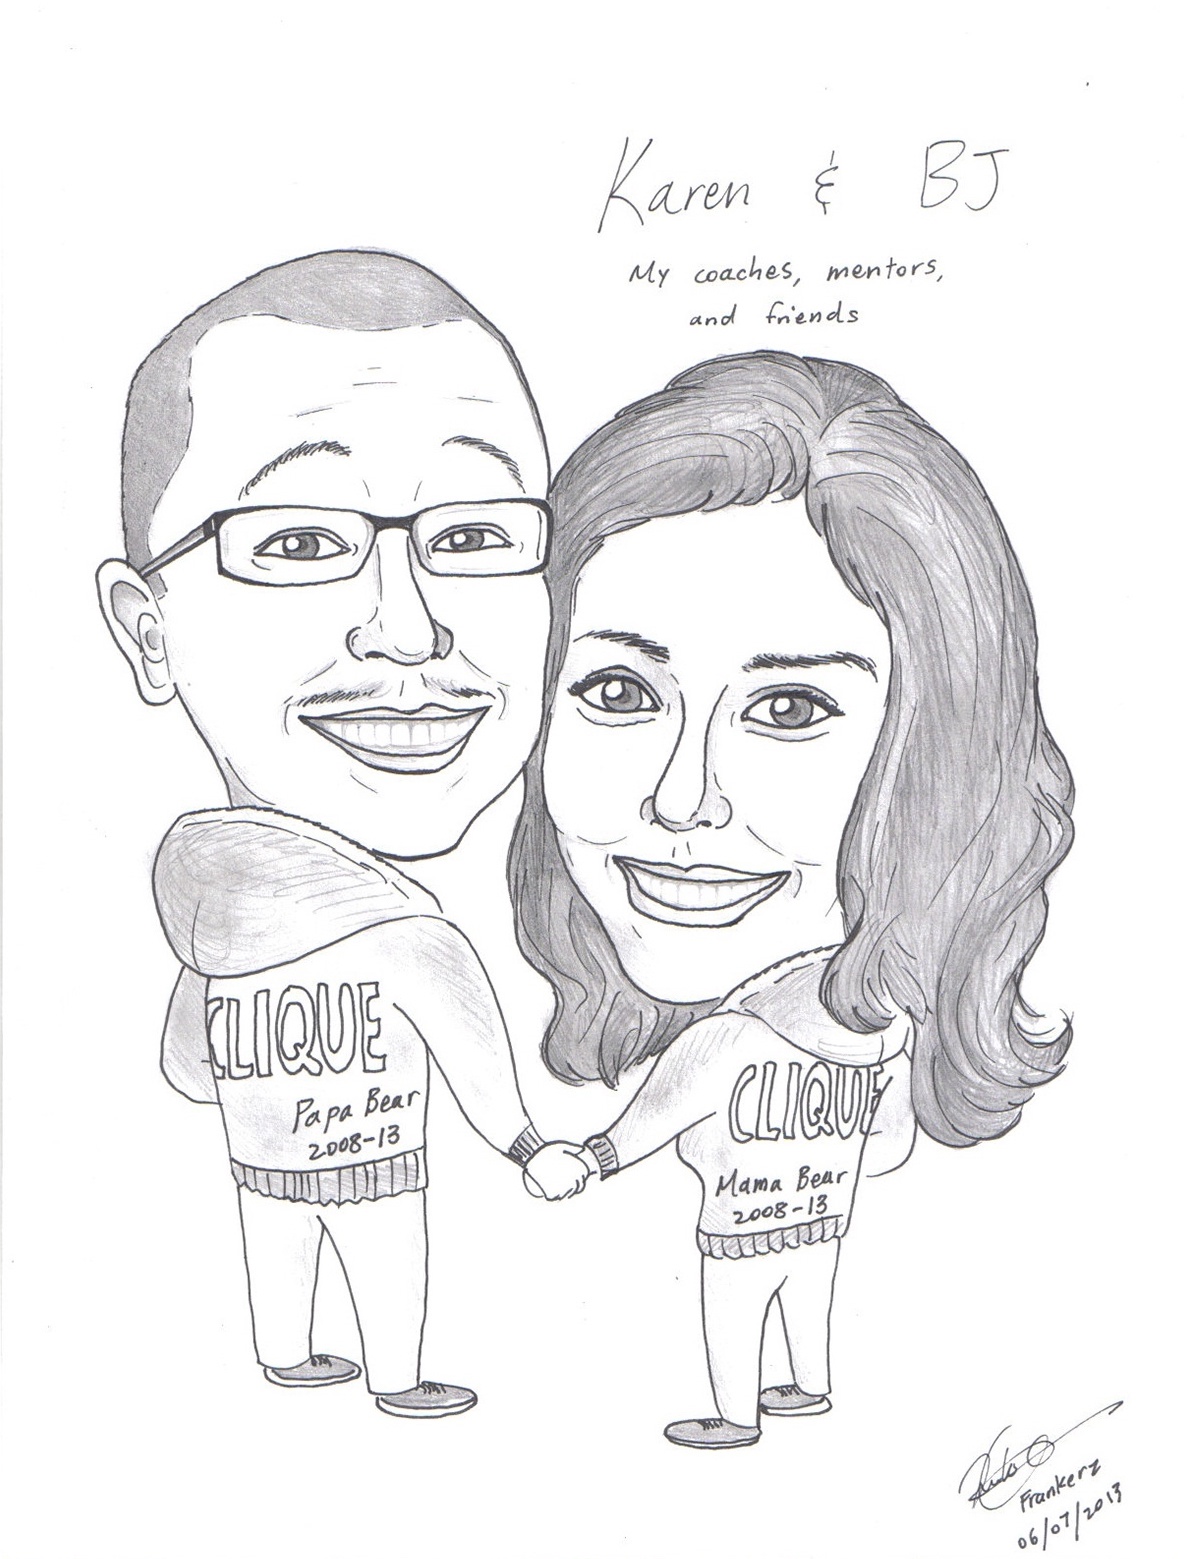 Karen & BJ
My coaches, mentors,
and friends
CLIQUE
Papa Bear
2008-13
CLIQUE
Mama Bear
2008-13
Frankerz
06/07/2013